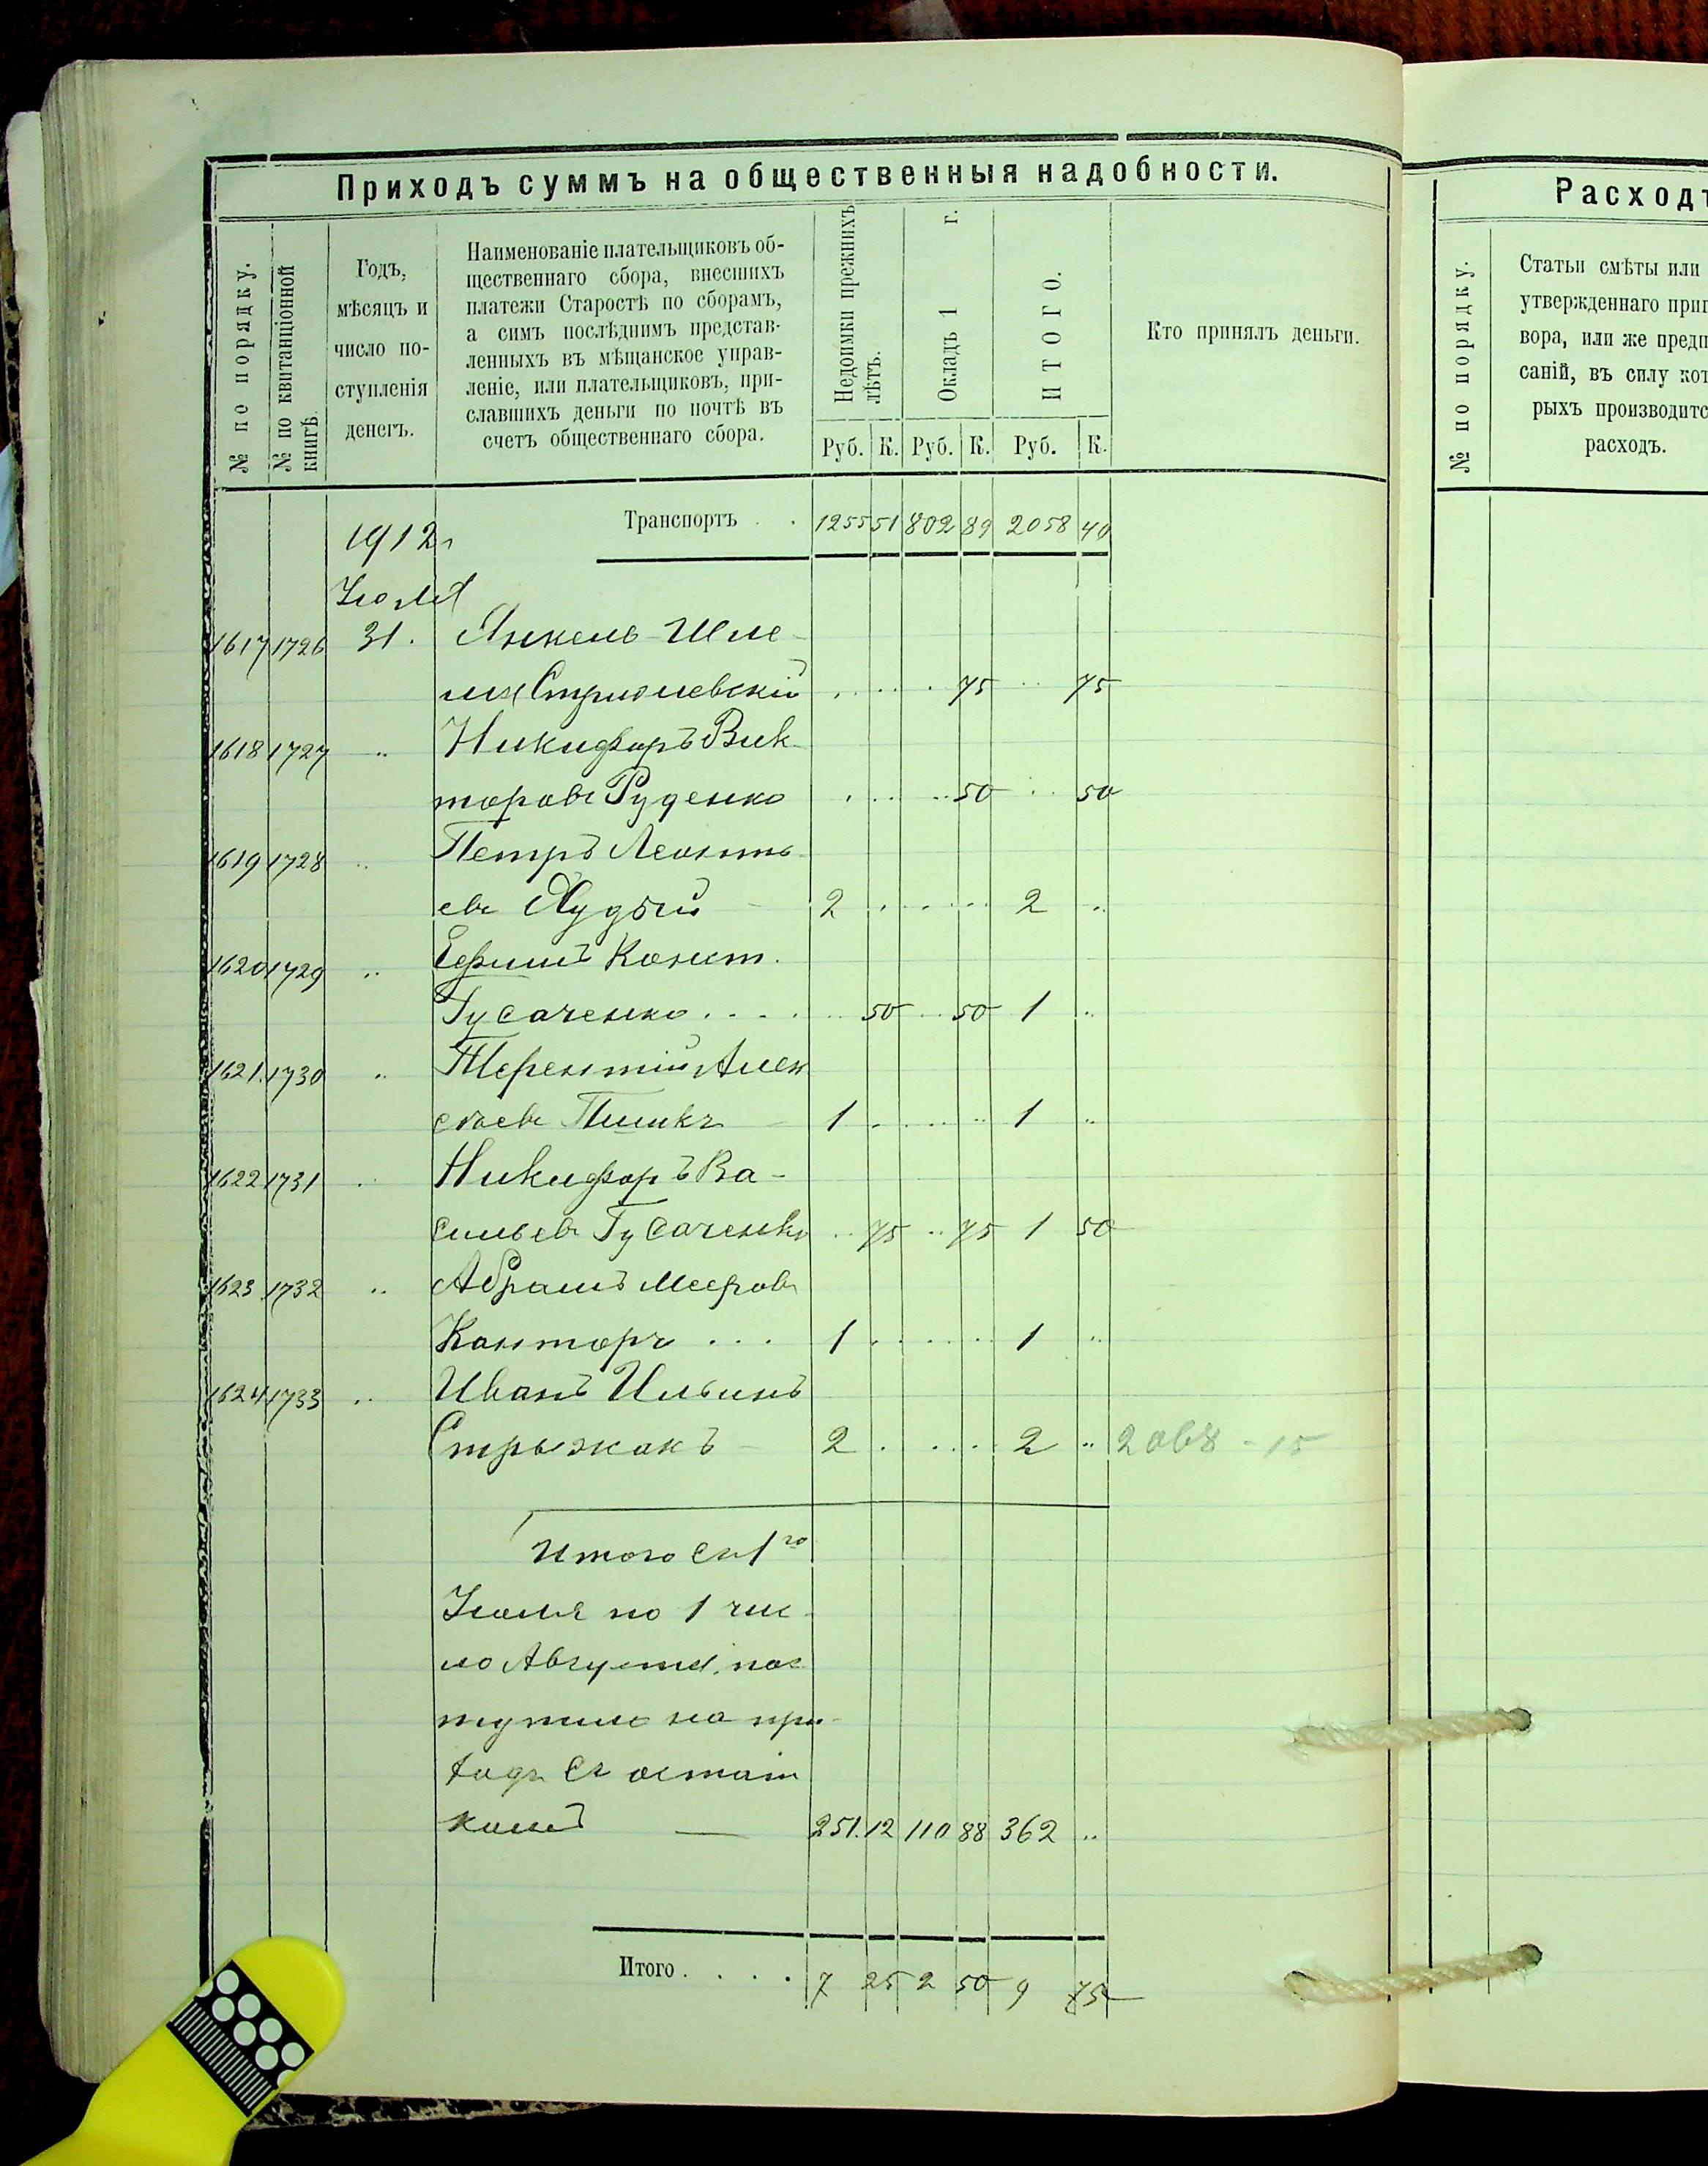 Приходъ суммъ на общественныя надобности.
№ по порядку.
№ по квитанціонной
книгѣ.
Годъ,
мѣсяцъ и
число по-
ступленія
денегъ.
Наименованіе плательщиковъ об-
щественнаго сбора, внесшихъ
платежи Старостѣ по сборамъ,
а симъ послѣднимъ представ-
ленныхъ въ мѣщанское управ-
леніе, или плательщиковъ, при-
славшихъ деньги по почтѣ въ
счетъ общественнаго сбора.
Недоимки прежнихъ
лѣтъ.
Окладъ 1 г.
ИТОГО.
Руб. К. Руб. К. Руб. К.
Кто принялъ деньги.
Транспортъ . . 1255 51 802 89 2058 40
1912 г
Іюля
1617 1726 31. Янкель Шле-
75 75
1618 1727 " Никифоръ Вик-
торовъ Руденко 50 50
1619 1728 " Петръ Леонть-
евъ Худый - 2 2 "
1620 1729 " Ефимъ Конст.
Гусаченко . . . . 50 50 1 "
1621. 1730 " Терентій Алек
сѣевъ 1 1 "
1622 1731 " Никифоръ Ва-
сильевъ Гусаченко 75 75 1 50
1623 1732 " Абрамъ Мееровъ
Канторъ . . . 1 1 "
1624 1733 " Иванъ Ильинъ
Стрыжакъ - 2 2 " 2068 - 15
Итого съ 1го
Іюля по 1 чис-
ло Августа, пос
тупило на при-
ходъ съ остат
комъ — 251. 12 110 88 362 "
Итого . . . . 7 25 2 50 9 75
Расход
№ по порядку.
Статьи смѣты или
утвержденнаго при
вора, или же предп
саній, въ силу кот
рыхъ производитс
расходъ.